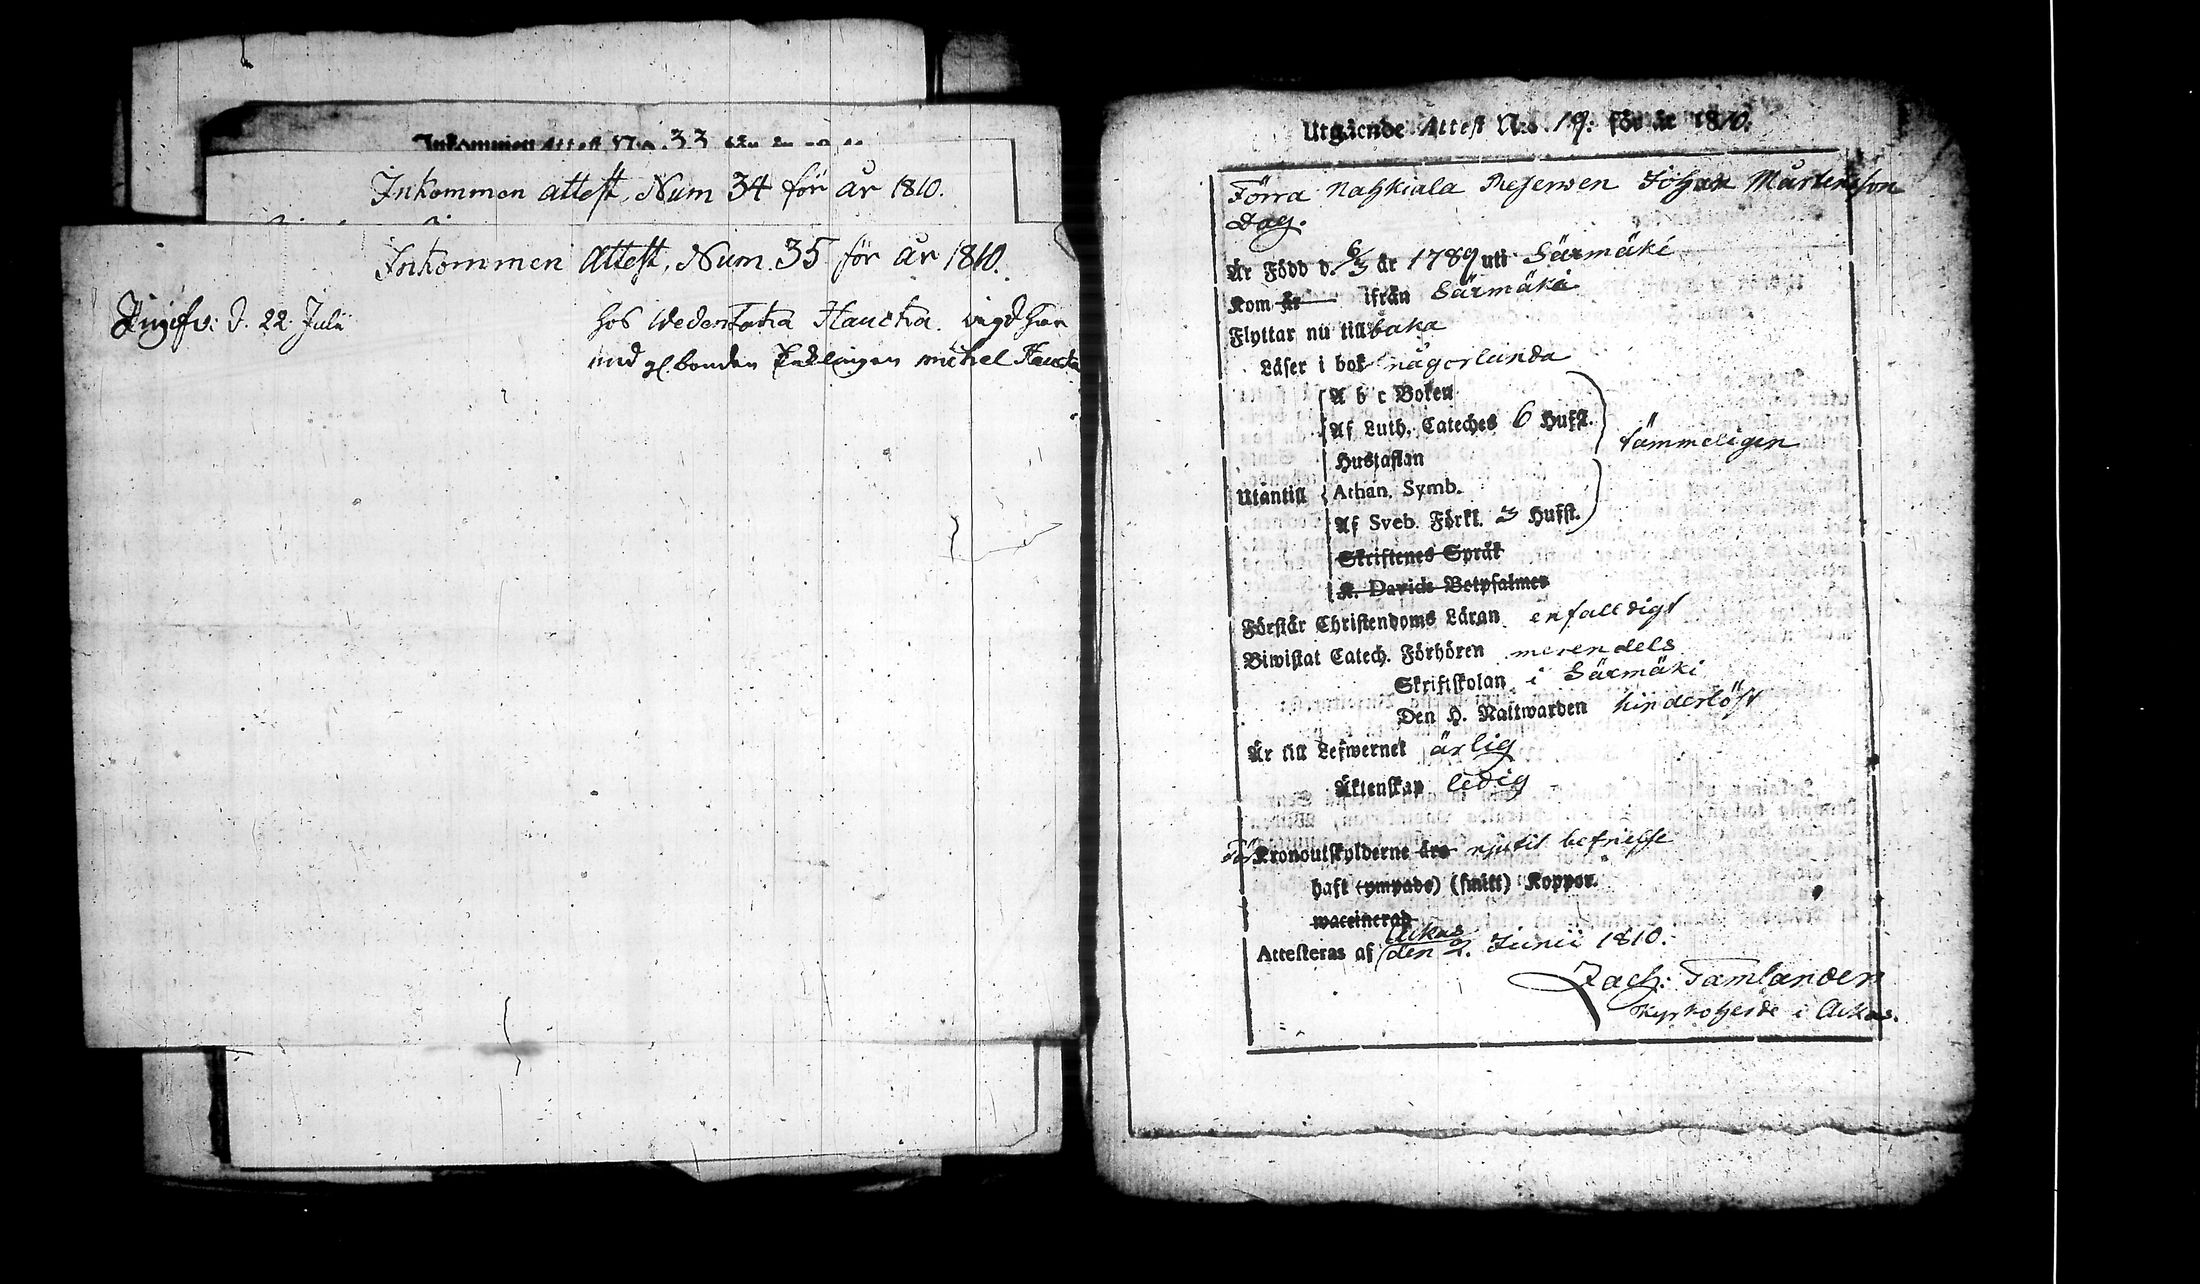 Inkommen Attest No. 33 för år
Inkommen attest, Num 34 för år 1810.
Inkommen Attest, Num. 35 för år 1810.
d. 22 Julii
hos
med gl. bonden michel
Utgående Attest N:o 19: för år 1810.
Förra Nahkiala Johan Mårtensson
Dag.
Är Född d. 6/3 år 1789 uti Särmäki
Kom år ifrån Särmäki
Flyttar nu tillbaka
Läser i bok någorlunda
A b c Boken
Af Luth. Cateches 6 Hufst.
tämmeligen
Hustaflan
Utantill Athan. Symb.
Af Sveb. Förkl. 3 Hufst.
Skriftenes Språk
K. Davids Botpsalmer
Förstår Christendoms Läran enfalldigt
Biwistat Catech. Förhören merendels
Skriftskolan i Särmäki
Den H. Nattwarden hinderlöst
Är till Lefwernet ärlig
Äktenskap ledig
För Kronoutskylderne äro njutit befrielse
haft (ympade) (smitt) Koppor.
waccinerad
Attesteras af Ackas
den 2. Junii 1810.
Zach: Tamlander
Kyrkoherde i Ackas.